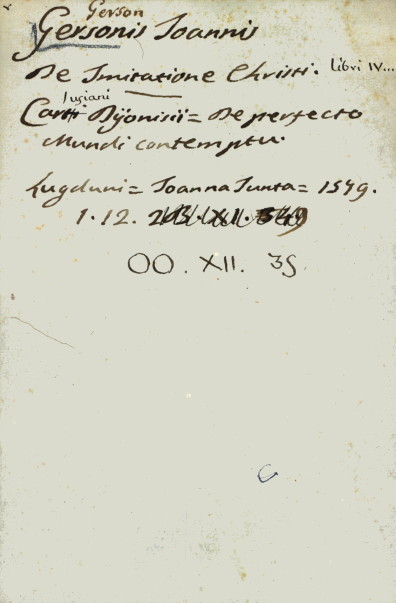 Gerson
Gersonis Joannis
De Imitatione Christi. Libri IV...
Cartusiani Dijonisii = De perfecto
Mundi contemptu.
Lugduni = Joanna Junta = 1549.
1. 12.
OO. XII. 35
G